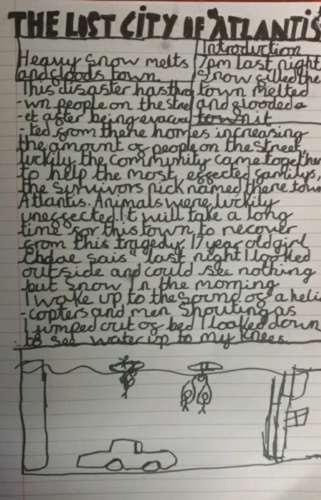 THE LOST CITY OF "ATLANTIS
Heavy snow melts
and floods town
Introduction
7pm last night
Snow filled the
town melted
and flooded
town it
This disaster has thro
-wn people on the stre
-et after being evacua
-ted from there homes increasing
the amount of people on the street
luckily the community came together
to help the most, effected familys,
the survivors nick named there town
Atlantis. Animals were luckily
uneffected! t will take a long
time for this town to recover
from this tragedy. 17 year old girl
Chloe said "last night I looked
outside and could see nothing
but snow in the morning
I wake up to the sound of a heli
-copters and men shouting as
I jumped out of bed I looked down
to see water up to my knees.